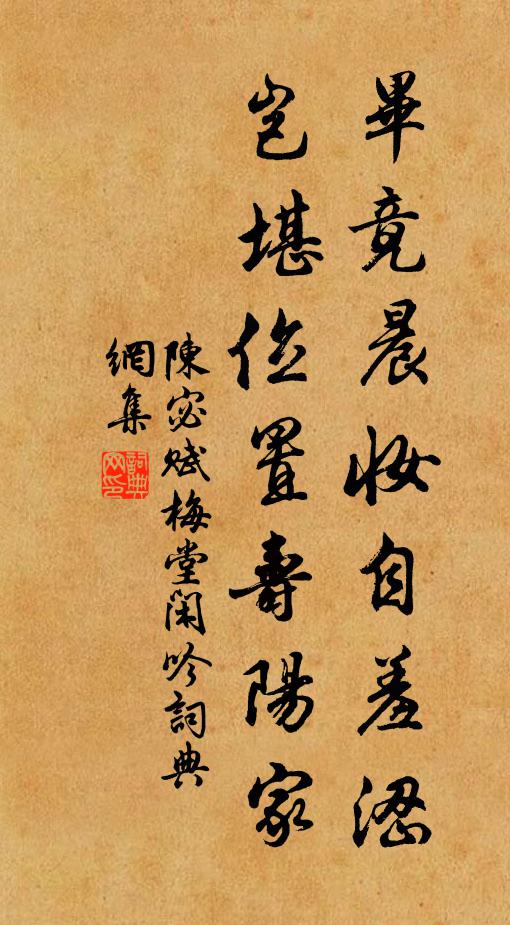 畢竟晨妝自羞澀
豈堪位置壽陽家
陳宓賦梅堂閑吟詞典
網集
詞典網印